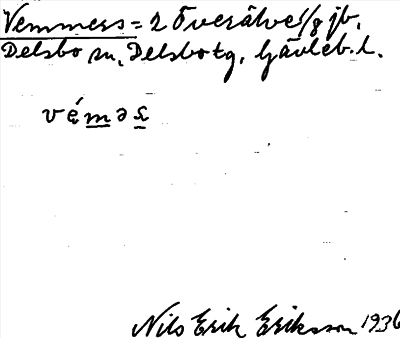 Vemmers = 2 Överälve 1/8 jb.
Delsbo sn, Delsbo tg, Gävleb. l.
vę́məs̨
Nils Erik Eriksson 1936